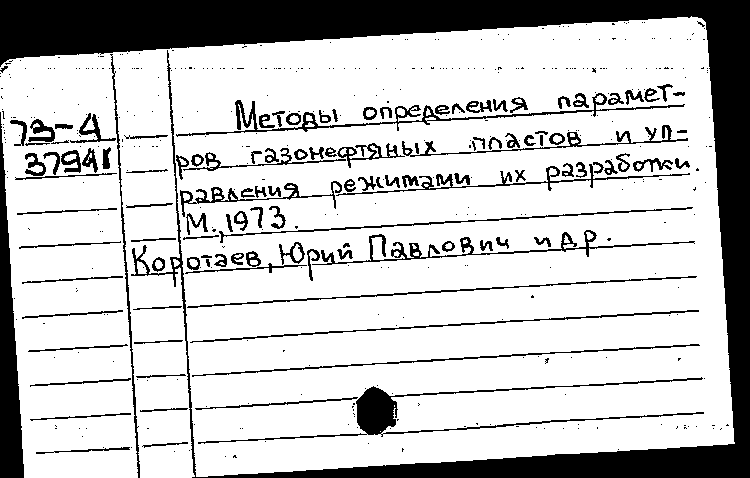 73-4
37941
Методы определения парамет-
ров газонефтяных пластов и уп-
равления режимами их разработки.
М., 1973.
Коротаев, Юрий Павлович и др.